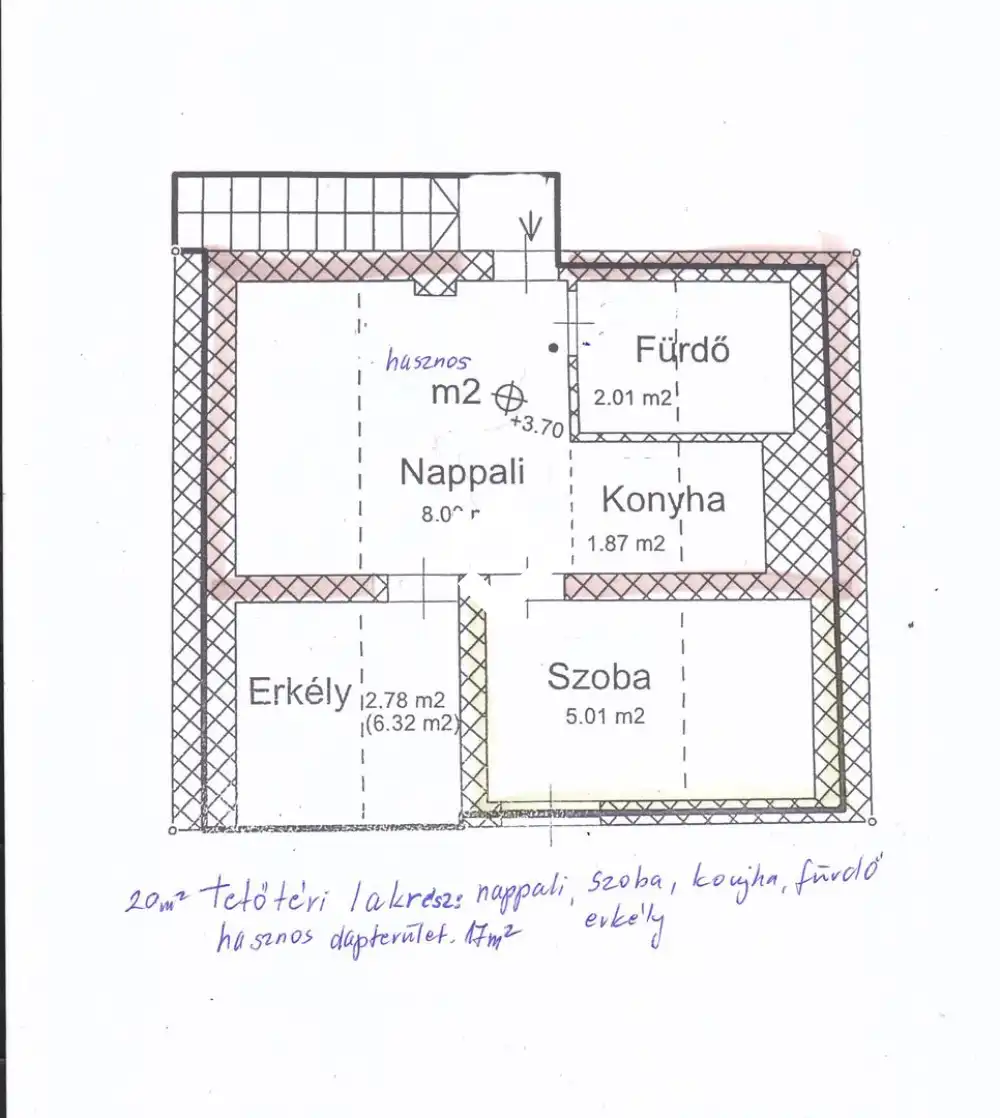 Fürdő
2.01 m2
hasznos
m2
+3.70
Nappali
8.0
Konyha
1.87 m2
Erkély
2.78 m2
(6.32 m2)
Szoba
5.01 m2
20m² Tetőtéri lakrész: nappali, szoba, konyha, fürdő
erkély
hasznos alapterület. 17m²